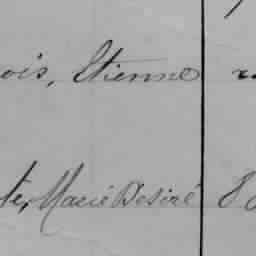 ois, Etienne
te, Marie Desiré